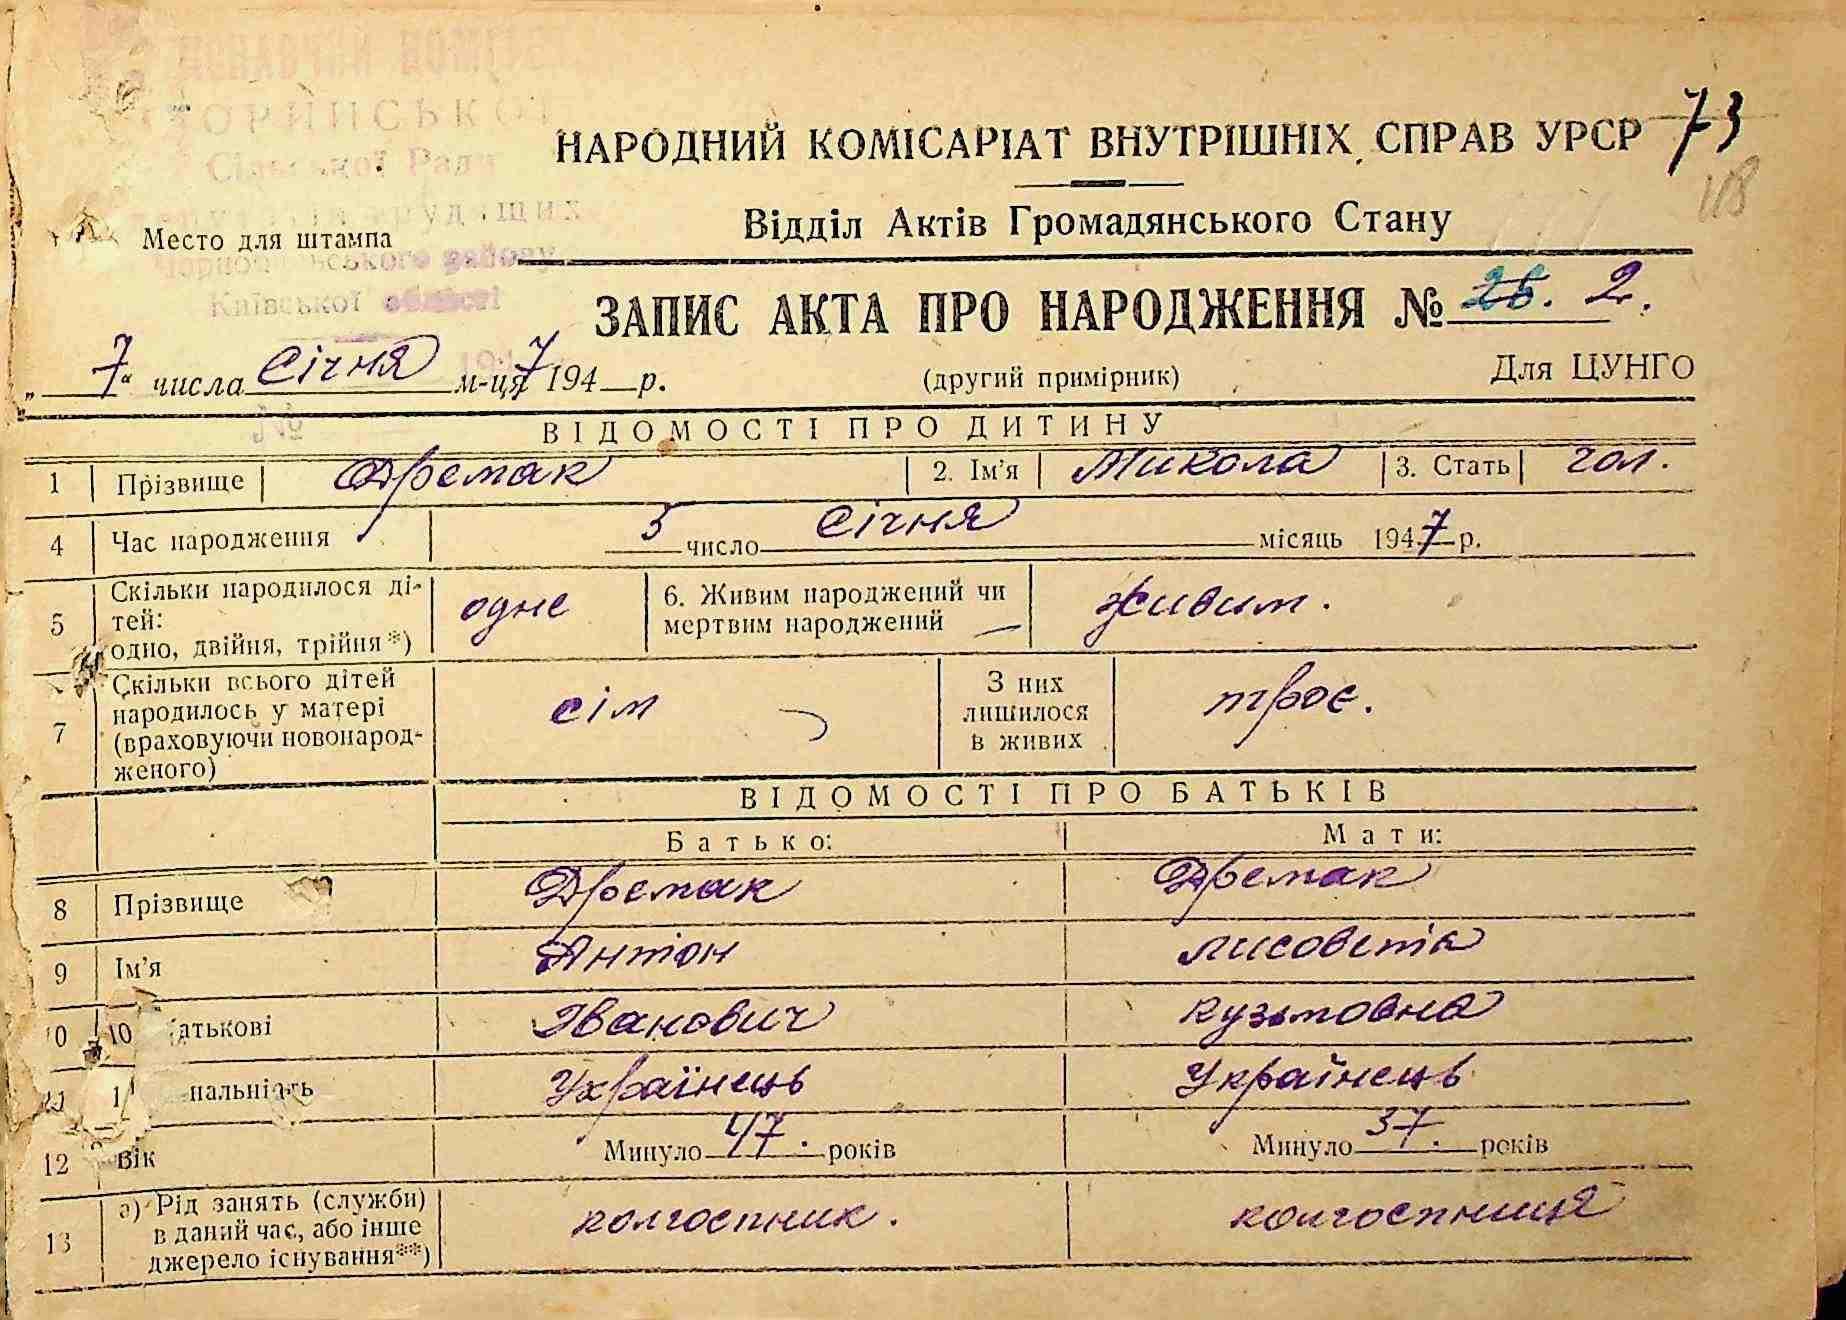 НАРОДНИЙ КОМІСАРІАТ ВНУТРІШНІХ СПРАВ УРСР 73
118
Сільської Ради
Відділ Актів Громадянського Стану
Место для штампа
району
Київської області
ЗАПИС АКТА ПРО НАРОДЖЕННЯ № 25. 2.
„7“ числа Січня м-ця 1947 р. (другий примірник) Для ЦУНГО
№
ВІДОМОСТІ ПРО ДИТИНУ
1 Прізвище Дремак 2. Ім’я Микола 3. Стать чол.
4 Час народження 5 число Січня місяць 1947 р.
5 Скільки народилося ді-
тей:
одно, двійня, трійня*) одне 6. Живим народжений чи
мертвим народжений живим.
7 Скільки всього дітей
народилось у матері
(враховуючи новонарод-
женого) сім З них
лишилося
в живих троє.
ВІДОМОСТІ ПРО БАТЬКІВ
Батько: Мати:
8 Прізвище Дремак Дремак
9 Ім’я Антон лисовета
10 атькові Іванович кузьмовна
11 нальність Українець Українець
12 Вік Минуло 47. років Минуло 37. років
13 а) Рід занять (служби)
в даний час, або інше
джерело існування**) колгоспник. колгоспниця